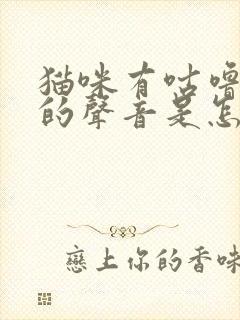 猫咪有咕嚕
的聲音是怎
戀上你的香味